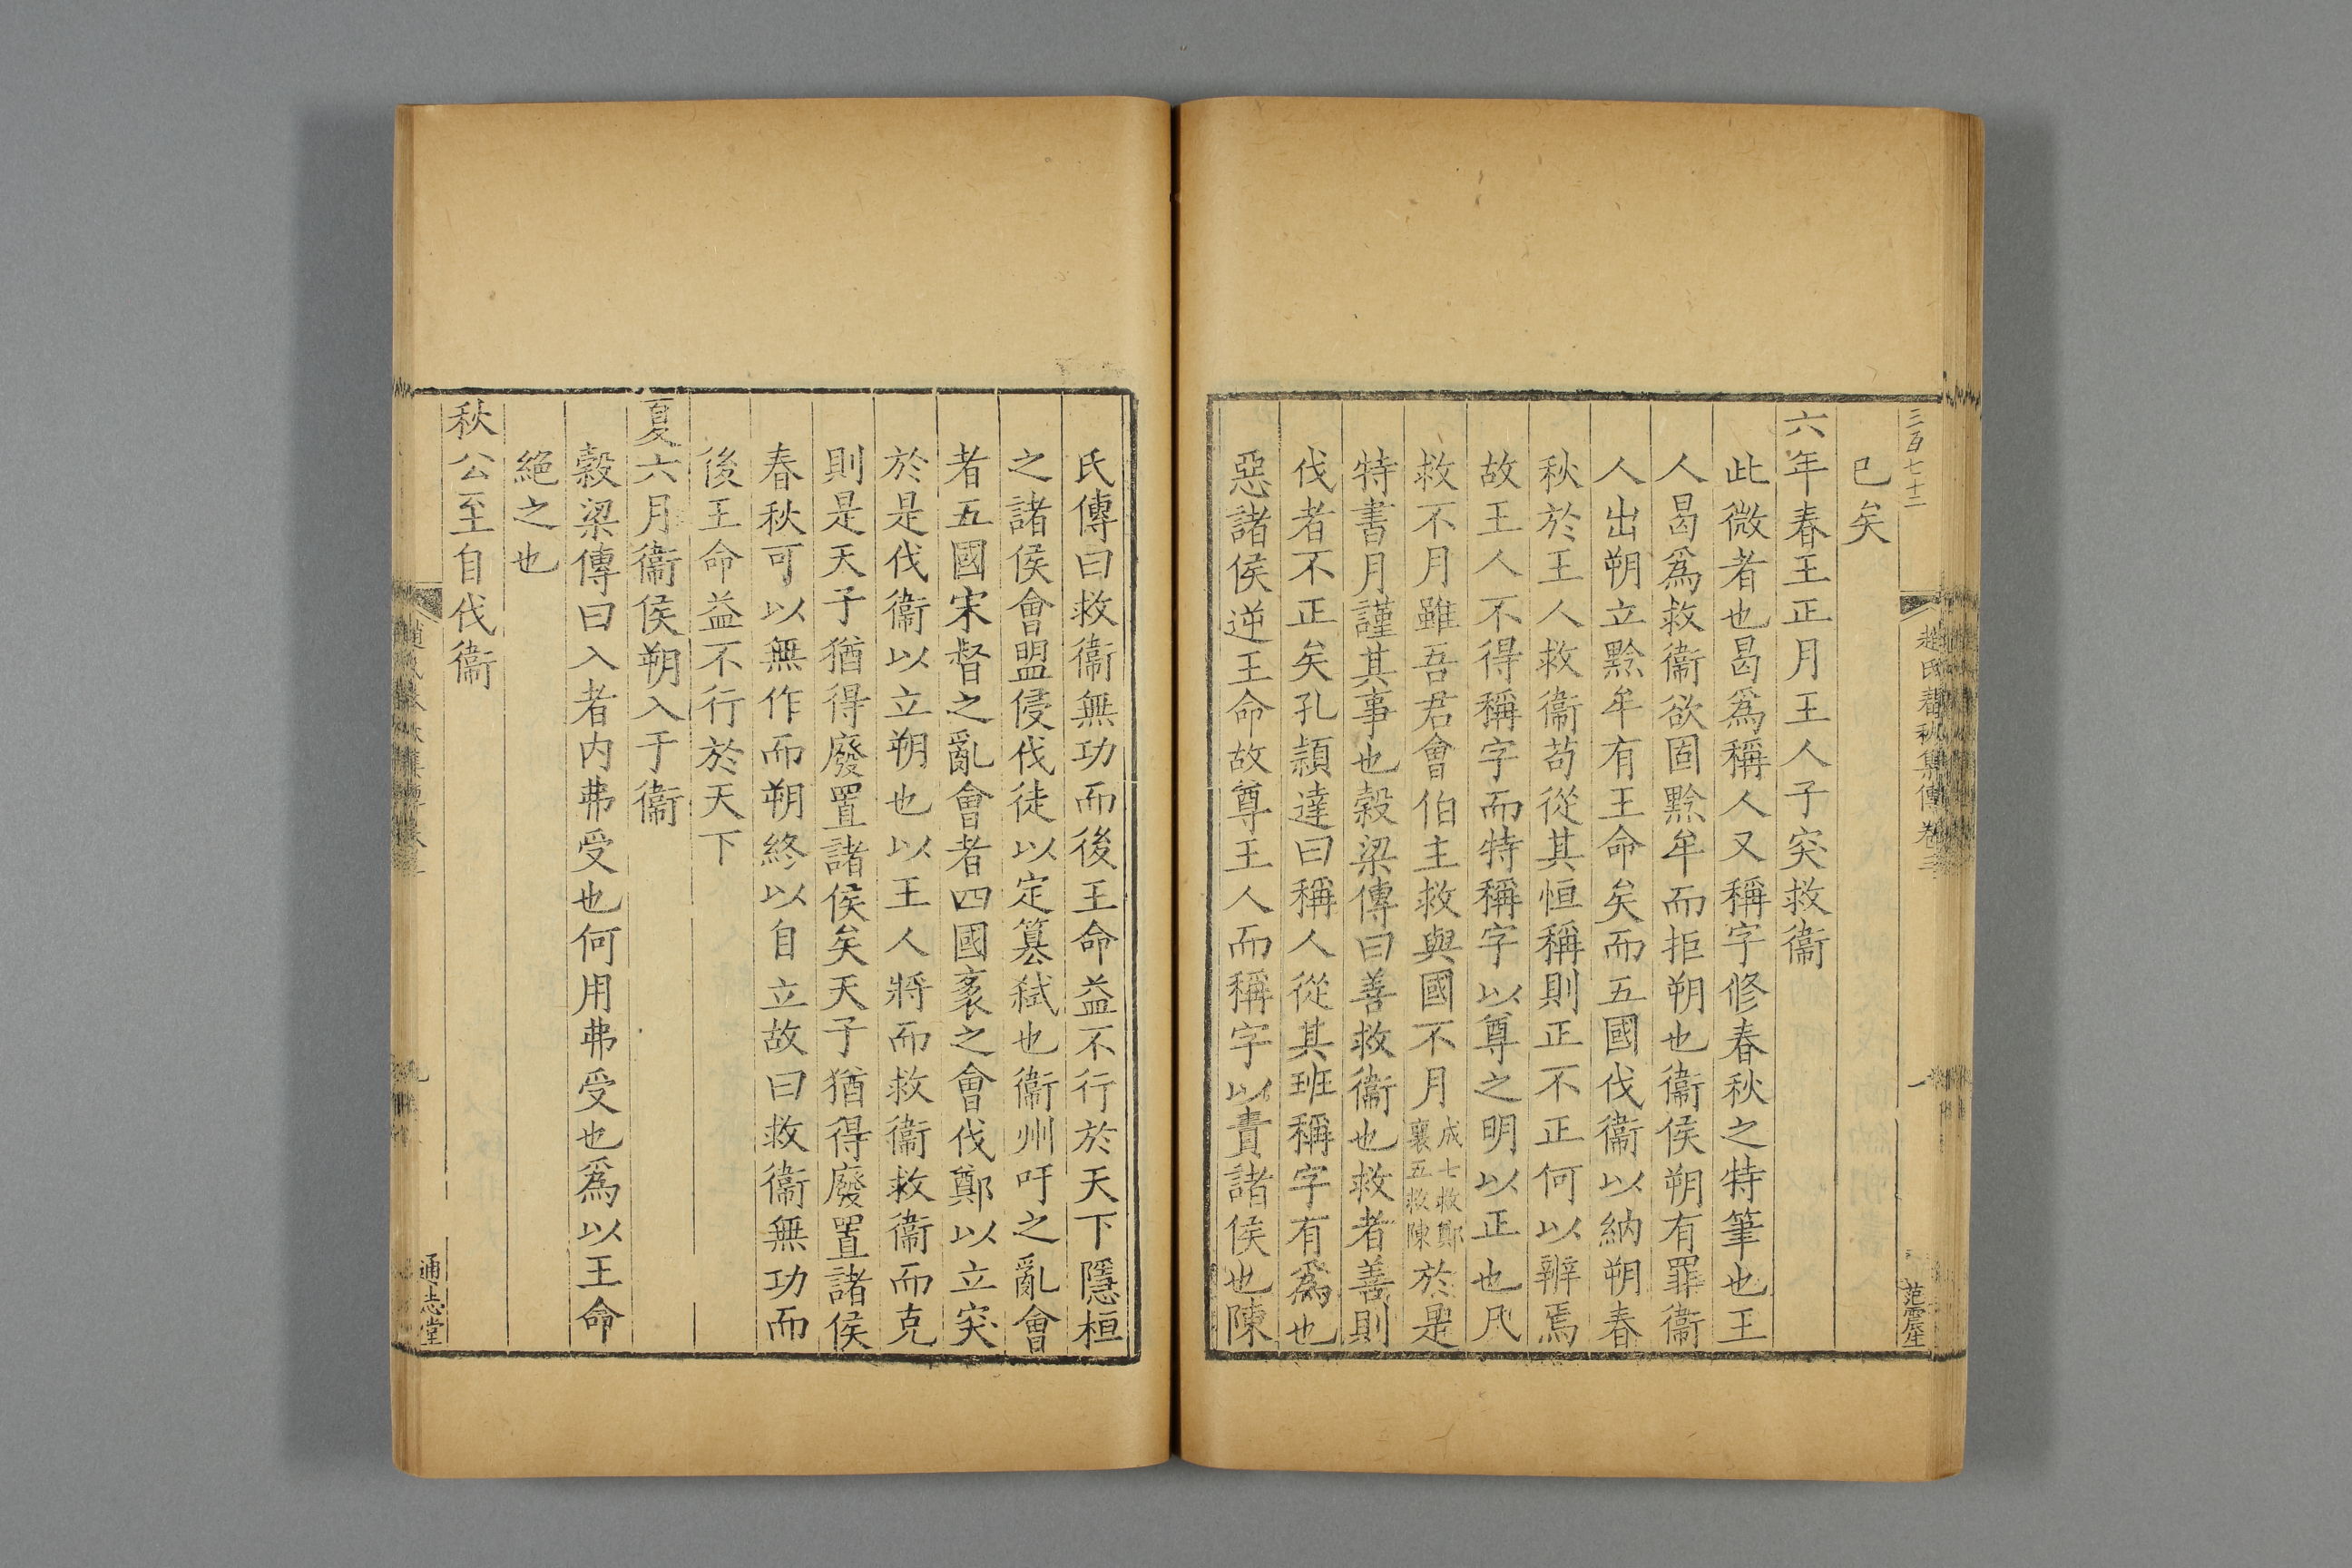 三百七十二
趙氏春秋集傳 卷三
一
范震生
已矣
六年春王正月王人子突救衞
此微者也曷爲稱人又稱字修春秋之特筆也王
人曷爲救衞欲固黔牟而拒朔也衞侯朔有罪衞
人出朔立黔牟有王命矣而五國伐衞以納朔春
秋於王人救衞苟從其恒稱則正不正何以辨焉
故王人不得稱字而特稱字以尊之明以正也凡
救不月雖吾君會伯主救與國不月成七救鄭襄五救陳於是
特書月謹其事也榖梁傳曰善救衞也救者善則
伐者不正矣孔頴達曰稱人從其班稱字有爲也
惡諸侯逆王命故尊王人而稱字以責諸侯也陳
氏傳曰救衞無功而後王命益不行於天下隱桓
之諸侯會盟侵伐徒以定簒弑也衞州吁之亂會
者五國宋督之亂會者四國袤之會伐鄭以立突
於是伐衞以立朔也以王人將而救衞救衞而克
則是天子猶得廢置諸侯矣天子猶得廢置諸侯
春秋可以無作而朔終以自立故曰救衞無功而
後王命益不行於天下
夏六月衞侯朔入于衞
榖梁傳曰入者内弗受也何用弗受也爲以王命
絕之也
秋公至自伐衞
通志堂